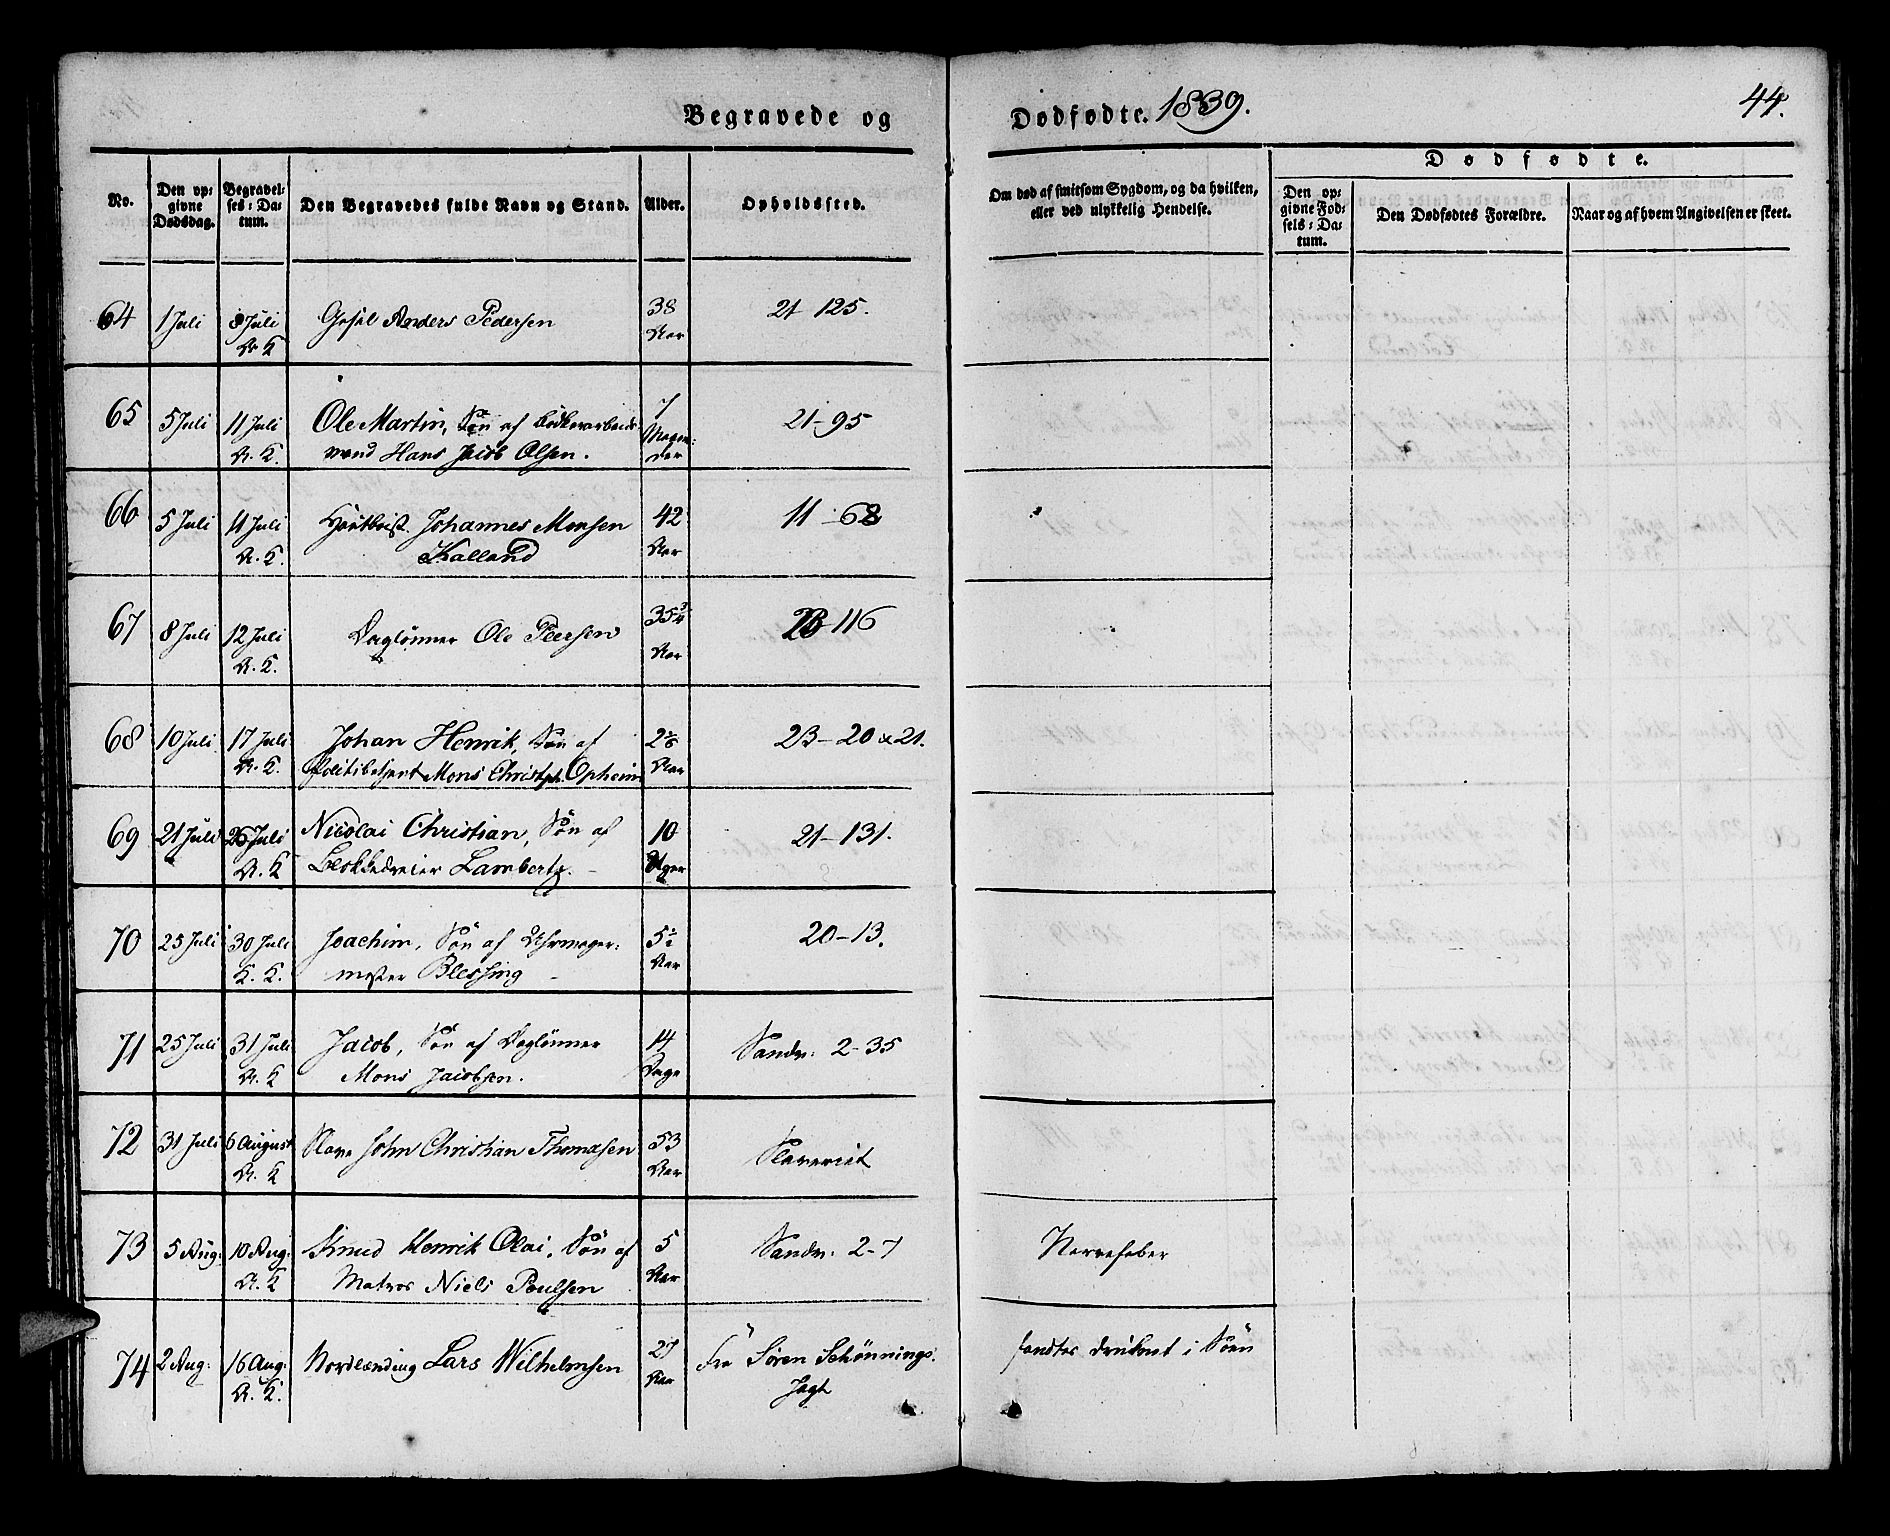 Begravede og
Dødfødte. 1839.
44.
No.
Den op-
givne
Dødsdag.
Begravel-
ses-Da-
tum.
Den Begravedes fulde Navn og Stand.
Alder.
Opholdssted.
Om død af smitsom Sygdom, og da hvilken,
eller ved ulykkelig Hendelse.
Dødfødte.
Den op-
givne Fød-
sels-Da-
tum.
Den Dødfødtes Forældre.
Naar og af hvem Angivelsen er skeet.
64 1 Juli 8 Juli Gesel Anders Pedersen 38 21 125.
K Aar
65 5 Juli 11 Juli Ole Martin, Søn af 7 21-95
K. mand Hans Jacob Olsen. Maane-
der
66 5 Juli 11 Juli Johannes Monsen 42 11-68
K. Kalland Aar
67 8 Juli 12 Juli Daglønner Ole Peersen 35 3/4 23-116
K. Aar
68 10 Juli 17 Juli Johan Henrik, Søn af 2 23-20 & 21.
K. Politibetjent Mons Christph. Opheim Aar
69 21 Juli 26 Juli Nicolai Christian, Søn af 10 21-131.
K Blokkedreier Lambertz. Uger
70 25 Juli 30 Juli Joachim, Søn af Uhrmager- 5 1/2 20-13.
K. mester Blessing Aar
71 25 Juli 31 Juli Jacob, Søn af Daglønner 14 Sandv: 2-35
K Mons Jacobsen. Dage
72 31 Juli 6 August Slave John Christian Thomasen 53 Slaveriet
K Aar
73 5 Aug: 10 Aug: Knud Henrik Olai, Søn af 5 Sandv: 2-7 Nervefeber
K Matros Niels Poulsen Aar
74 2 Aug: 16 Aug: Nordlænding Lars Wilhelmsen 27 Fra Søren Schønnings fandtes druknet i Søen
K. Aar Jagt